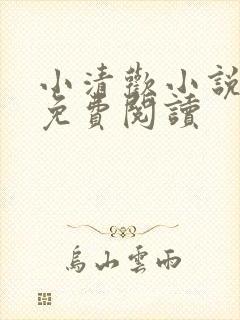 小清歡小說
免費閱讀
烏山雲雨